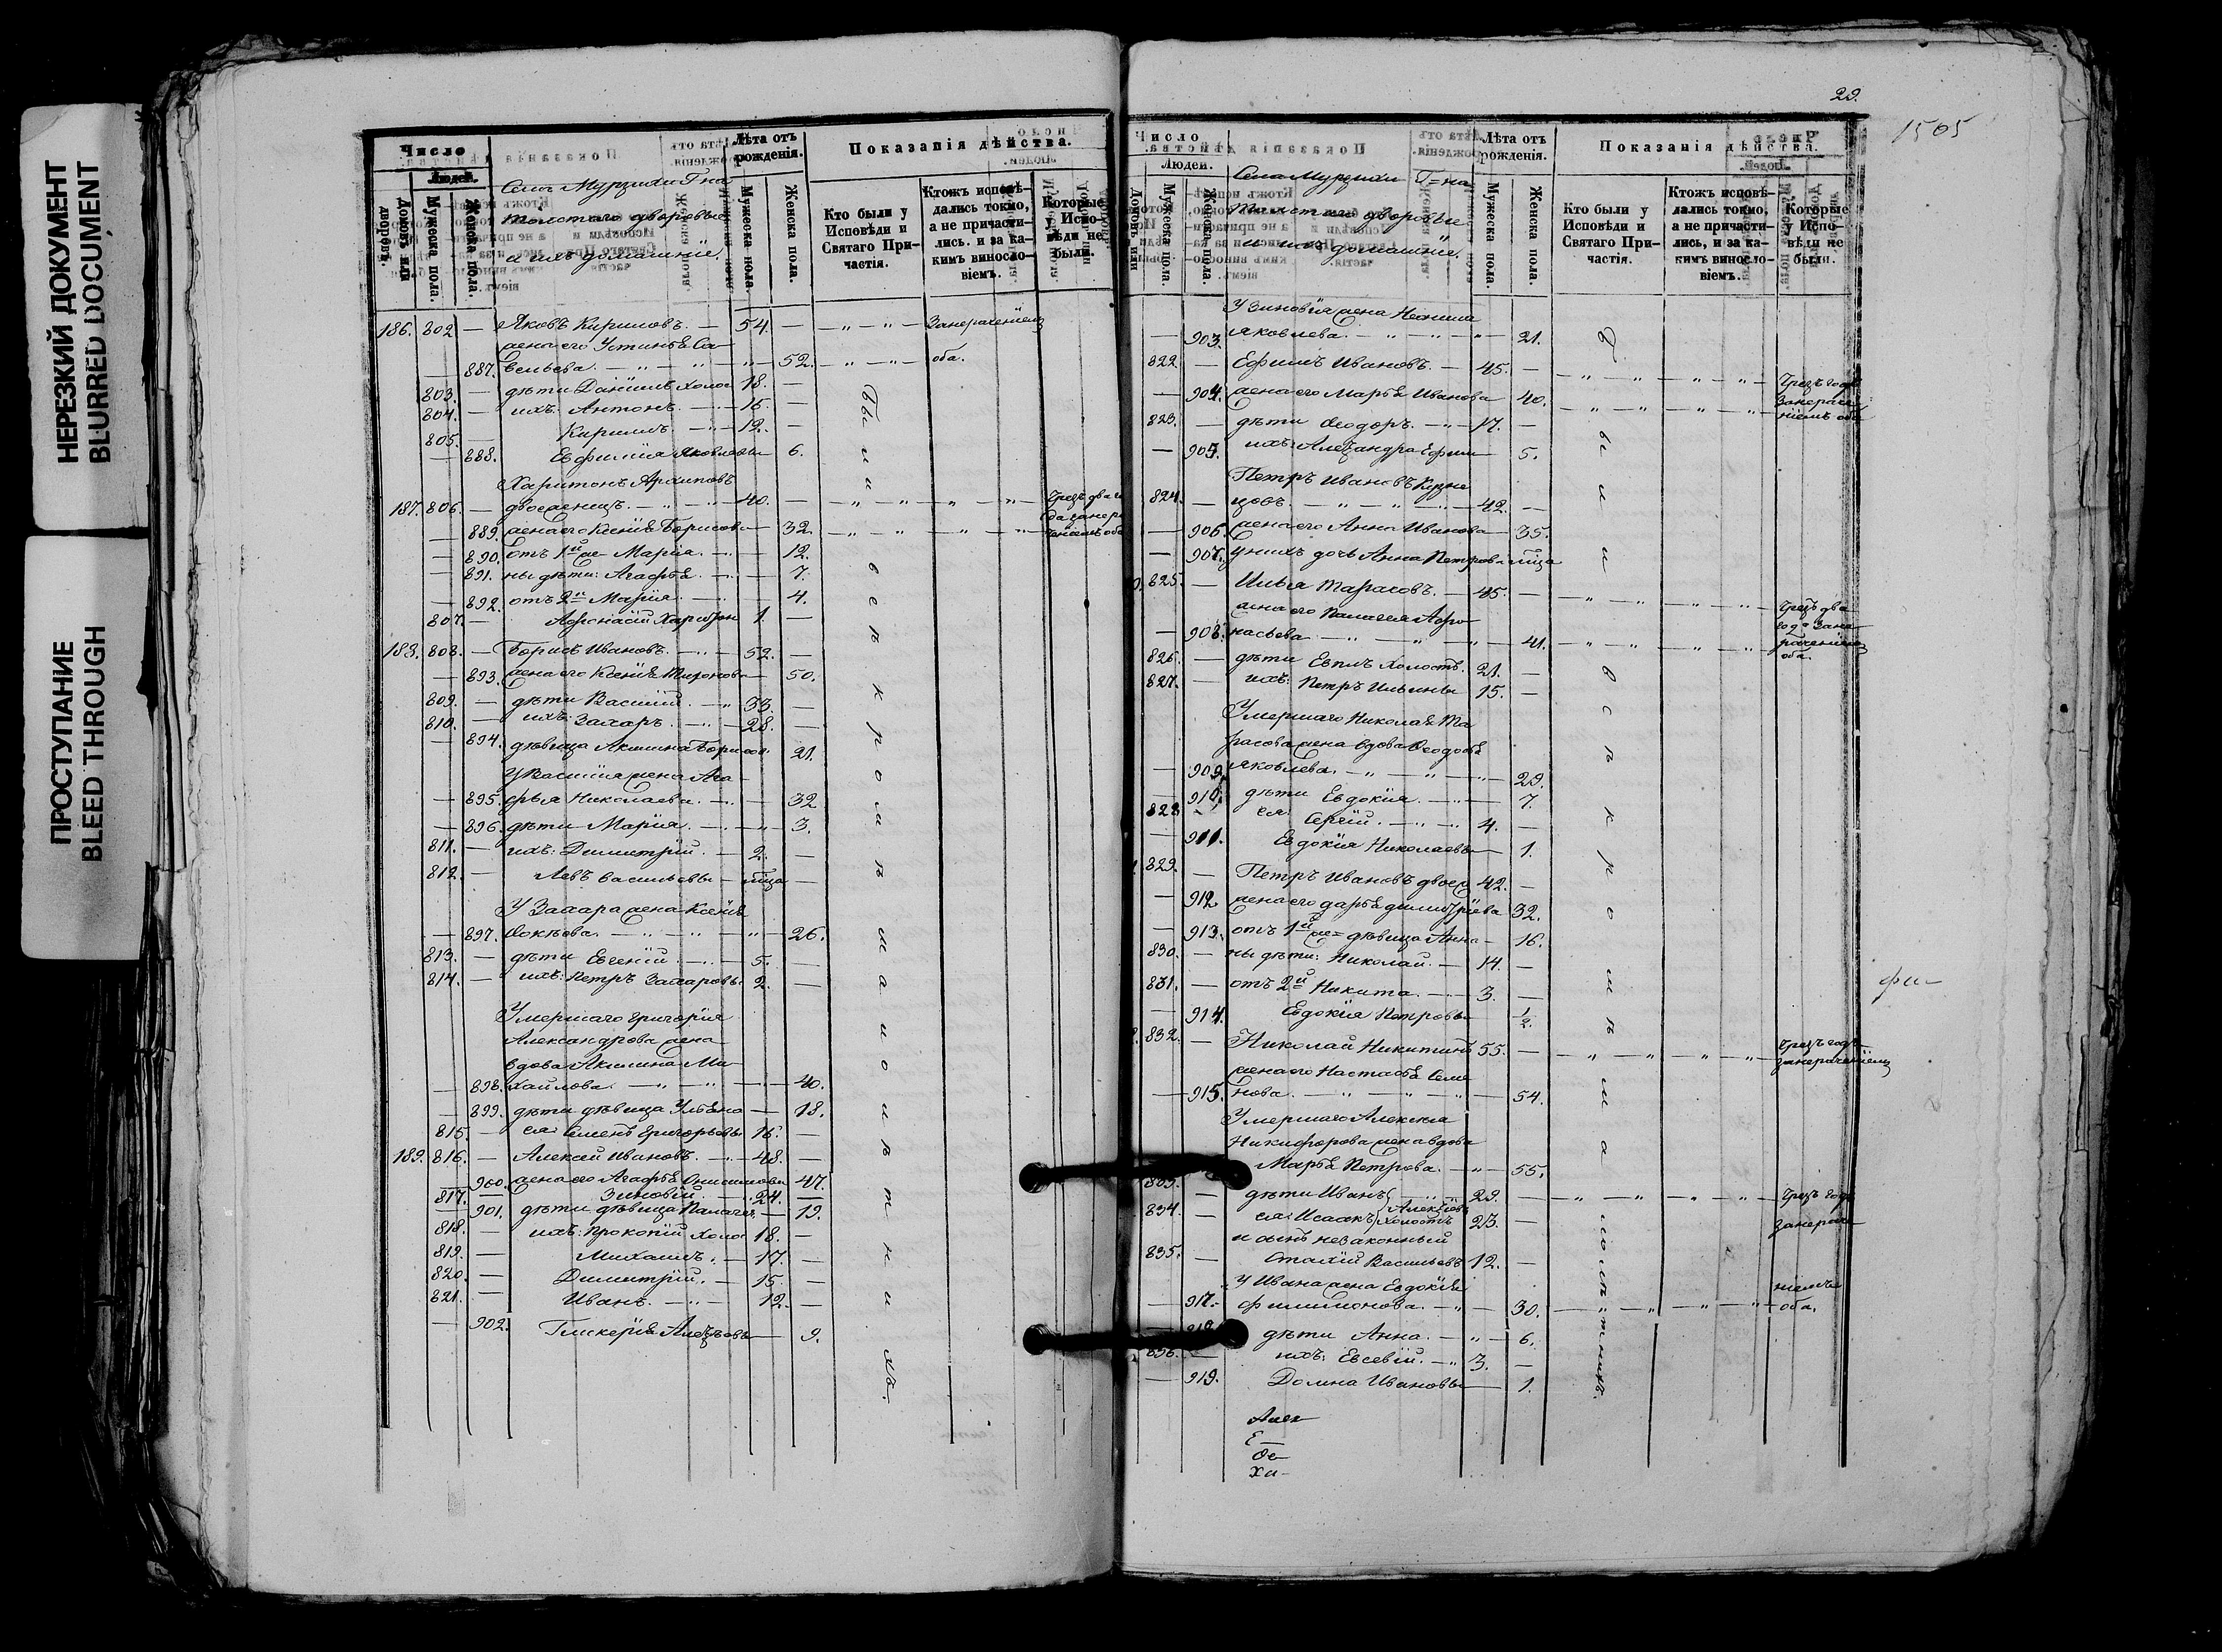 НЕРЕЗКИЙ ДОКУМЕНТ
BLURRED DOCUMENT
ПРОСТУПАНИЕ
BLEED THROUGH
Число
Людей.
Домовъ или дворовъ.
Мужеска пола.
Женска пола.
Села Мурзихи Г-на
Толстаго дворовые
и ихъ домашніе.
Лѣта отъ рожденія.
Мужеска пола.
Женска пола.
Показанія дѣйства.
Кто были у Исповѣди и Святаго Причастія.
Ктожъ исповѣдались токмо, а не причастились, и за какимъ винословіемъ.
Которые у Исповѣди не были.
186. 802 — Яковъ Кириловъ. — 54. — Занераченіемъ
жена его Устинья Са-
887. вельева. 52. оба.
803. — дѣти Даніилъ холос 18. —
804. — ихъ: Антонъ. 16. —
805. — Кирилъ. 12. —
— 888. Евфимія Яковлевы 6.
Харитонъ Архиповъ
187. 806. — двоеженецъ. 40. — Чрезъ два го
— 889. жена его Ксенія Борисова 32. да занера
ченіемъ оба
— 890. отъ 1й же Марія. 12.
— 891. ны дѣти: Агафья. 7.
— 892. отъ 2й Марія. 4.
807. — Афонасій Харитон 1. —
188. 808. — Борисъ Ивановъ. 52. —
— 893. жена его Ксенія Миронова 50.
809. — дѣти Василій. 33. —
810. — ихъ: Захаръ. 28. —
— 894. дѣвица Акилина Борисов. 21.
У Василія жена Ага-
— 895. фья Николаева. 32
— 896. дѣти Марія. 3.
811. — ихъ: Димитрій. 2. —
812. — Левъ Васильевы —
У Захара жена Ксенія
— 897. Фокѣева. 26.
813. — дѣти Евгеній. 5. —
814. — ихъ: Петръ Захаровы 2. —
Умершаго Григорія
Александрова жена
вдова Акилина Ми-
— 898. хайлова. 40.
— 899. дѣти дѣвица Ульяна — 18.
815. — ея: Семенъ Григорьевы 16. —
189. 816. — Алексѣй Ивановъ. 48. —
— 900. жена его Агафья Онисимова 47.
817. — Зиновій. 24. —
— 901. дѣти дѣвица Палагея. 19.
818. — ихъ: Прокопій холос 18. —
819. — Михаилъ. 17. —
820. — Димитрій. 15. —
821. — Иванъ. 12. —
— 902. Гликерія Алексѣевы 9.
29.
1505
Число
Людей.
Мужеска пола.
Женска пола.
Села Мурзихи Г=на
Толстаго дворовые
и ихъ домашніе.
Лѣта отъ рожденія.
Мужеска пола.
Женска пола.
Показанія дѣйства.
Кто были у Исповѣди и Святаго Причастія.
Ктожъ исповѣдались токмо, а не причастились, и за какимъ винословіемъ.
Которые у Исповѣди не были.
У Зиновія жена Неонила
— 903. Яковлева. 21.
822. — Ефимъ Ивановъ. 45. — Чрезъ годъ
— 904. жена его Марья Иванова 40. занераче
ніемъ оба
823. — дѣти Ѳеодоръ. 17. —
— 905. ихъ: Александра Ефим 5.
Петръ Ивановъ Кузне
824. — цовъ. 42. —
— 906. жена его Анна Иванова 35.
— 907. у нихъ дочь Анна Петрова
825. — Илья Тарасовъ. 45. — Чрезъ два
жена его Палагея Афо года зане
— 908. насьева. 41. раченіемъ
оба.
826. — дѣти Евплъ холостъ. 21. —
827. — ихъ: Петръ Ильины 15. —
Умершаго Николая Та
расова жена вдова Ѳеодосья
— 909. Яковлева. 29.
— 910. дѣти Евдокія. 7.
828 — ея: Сергій. 4. —
— 911. Евдокія Николаевы 1.
829. — Петръ Ивановъ двоеж 42. —
— 912 жена его Дарья Димитріева 32.
— 913. отъ 1й же= дѣвица Анна 16.
830. — ны дѣти: Николай. 14. —
831. — отъ 2й Никита. 3. —
— 914. Евдокія Петровы ½.
832. — Николай Никитинъ 55. — Чрезъ годъ
занераченіемъ
жена его Настасья Семе
— 915. нова. 54.
Умершаго Алексѣя
Никифорова жена вдова
Марья Петрова. 55.
833. — дѣти Иванъ 29. — Чрезъ годъ
834. — ея: Исаакъ холостъ 23. — занераче
и сынъ незаконный
835. — Стахій Васильевъ 12. —
У Ивана жена Евдокія ніемъ
— 917. Филимонова. 30. оба.
— 918 дѣти Анна. 6.
836. — ихъ: Евсевій. 3. —
— 919. Домна Ивановы 1.